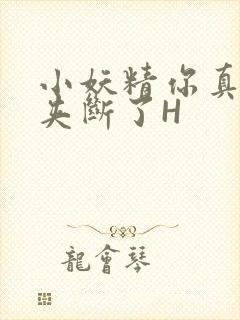 小妖精你真
夹断了H
龍會琴